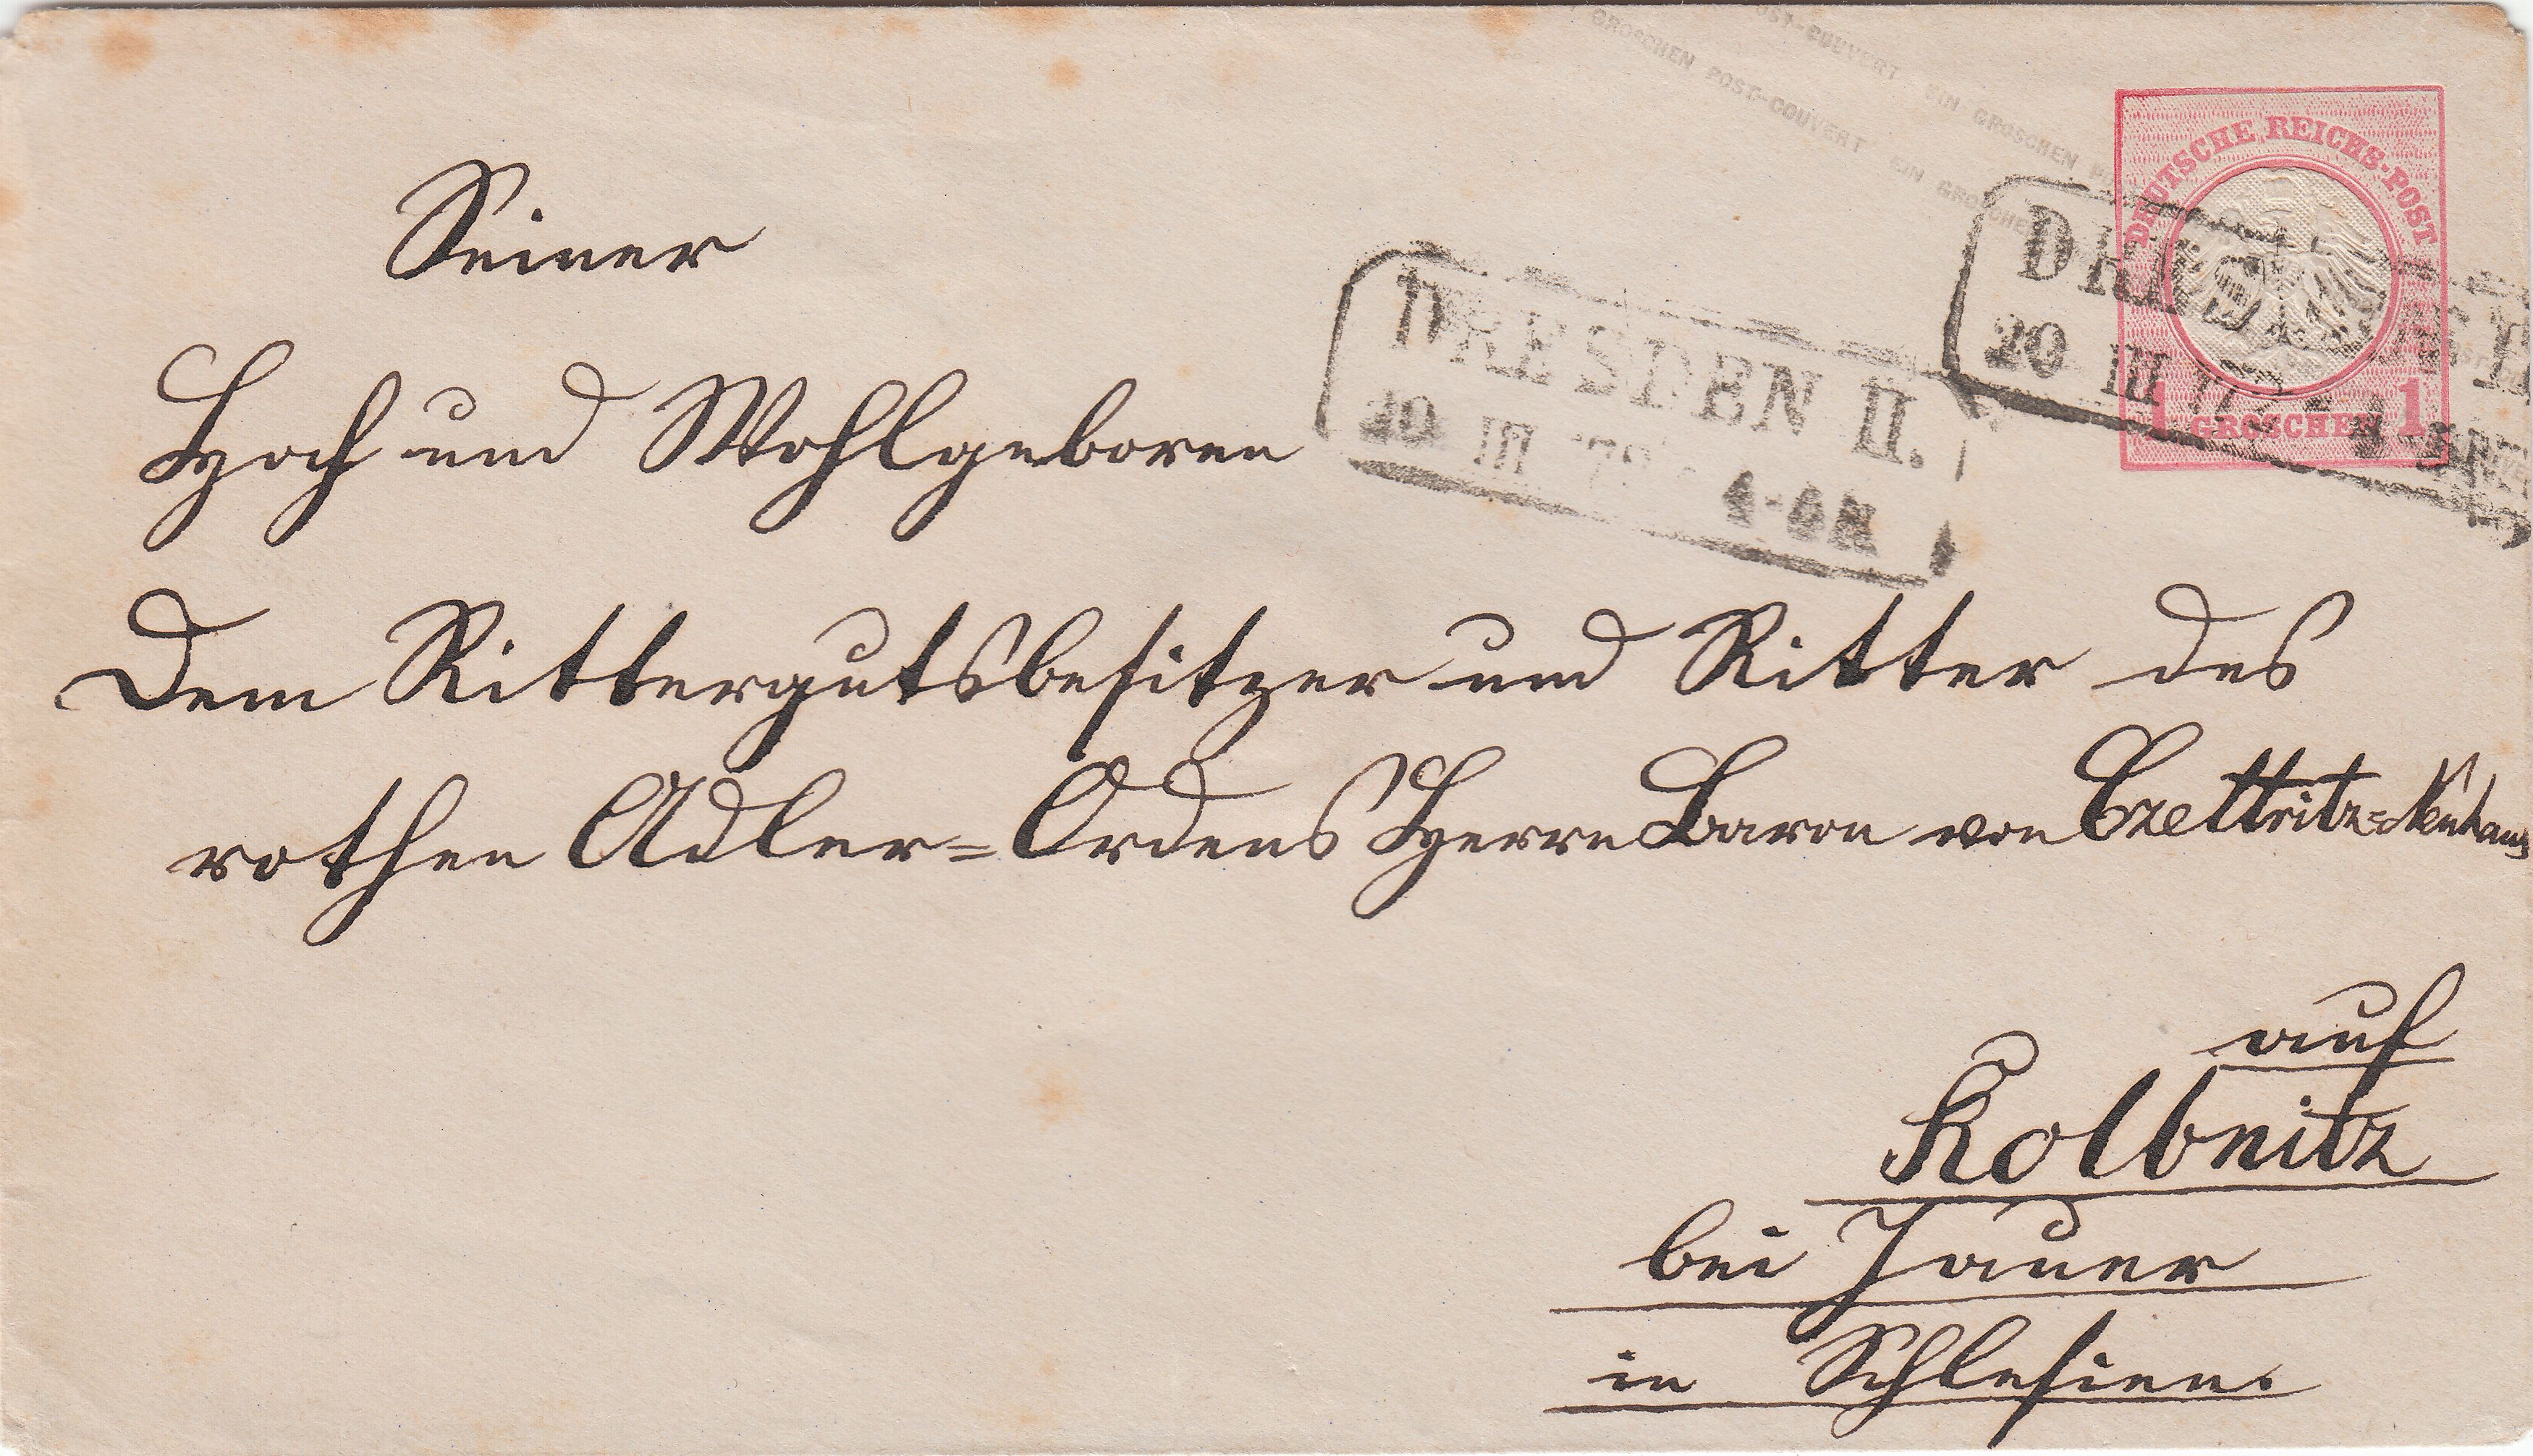 GROSCHEN POST-COUVERT EIN GROSCHEN
POST-COUVERT EIN GROSCHEN
DEUTSCHE REICHS-POST
1 GROSCHEN 1
DRESDEN II.
20 III 72
DRESDEN
20 III 72
Seiner
Hoch und Wohlgeboren
Dem Rittergutsbesitzer und Ritter des
rothen Adler=Ordens Herrn Baron von Czettritz=Neuhaus
auf
Kolbnitz
bei Jauer
in Schlesien.